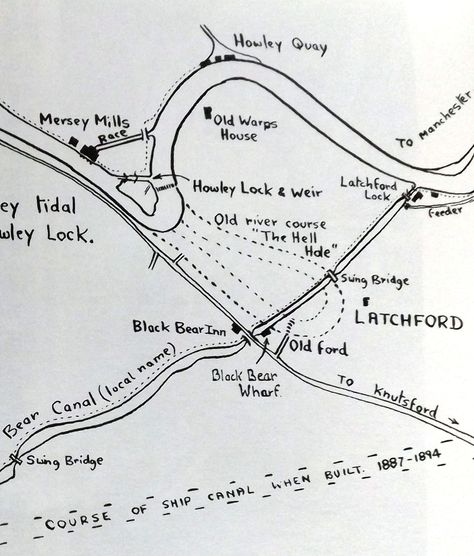 Howley Quay
Mersey Mills
Race
Old Warps
House
To Manchester
Howley Lock & Weir
Latchford
Lock
Feeder
ey Tidal
wley Lock.
Old river course
"The Hell
Hole"
Swing Bridge
LATCHFORD
Black Bear Inn
Old ford
Black Bear
Wharf.
To Knutsford
Bear Canal (local name)
Swing Bridge
COURSE OF SHIP CANAL WHEN BUILT. 1887-1894